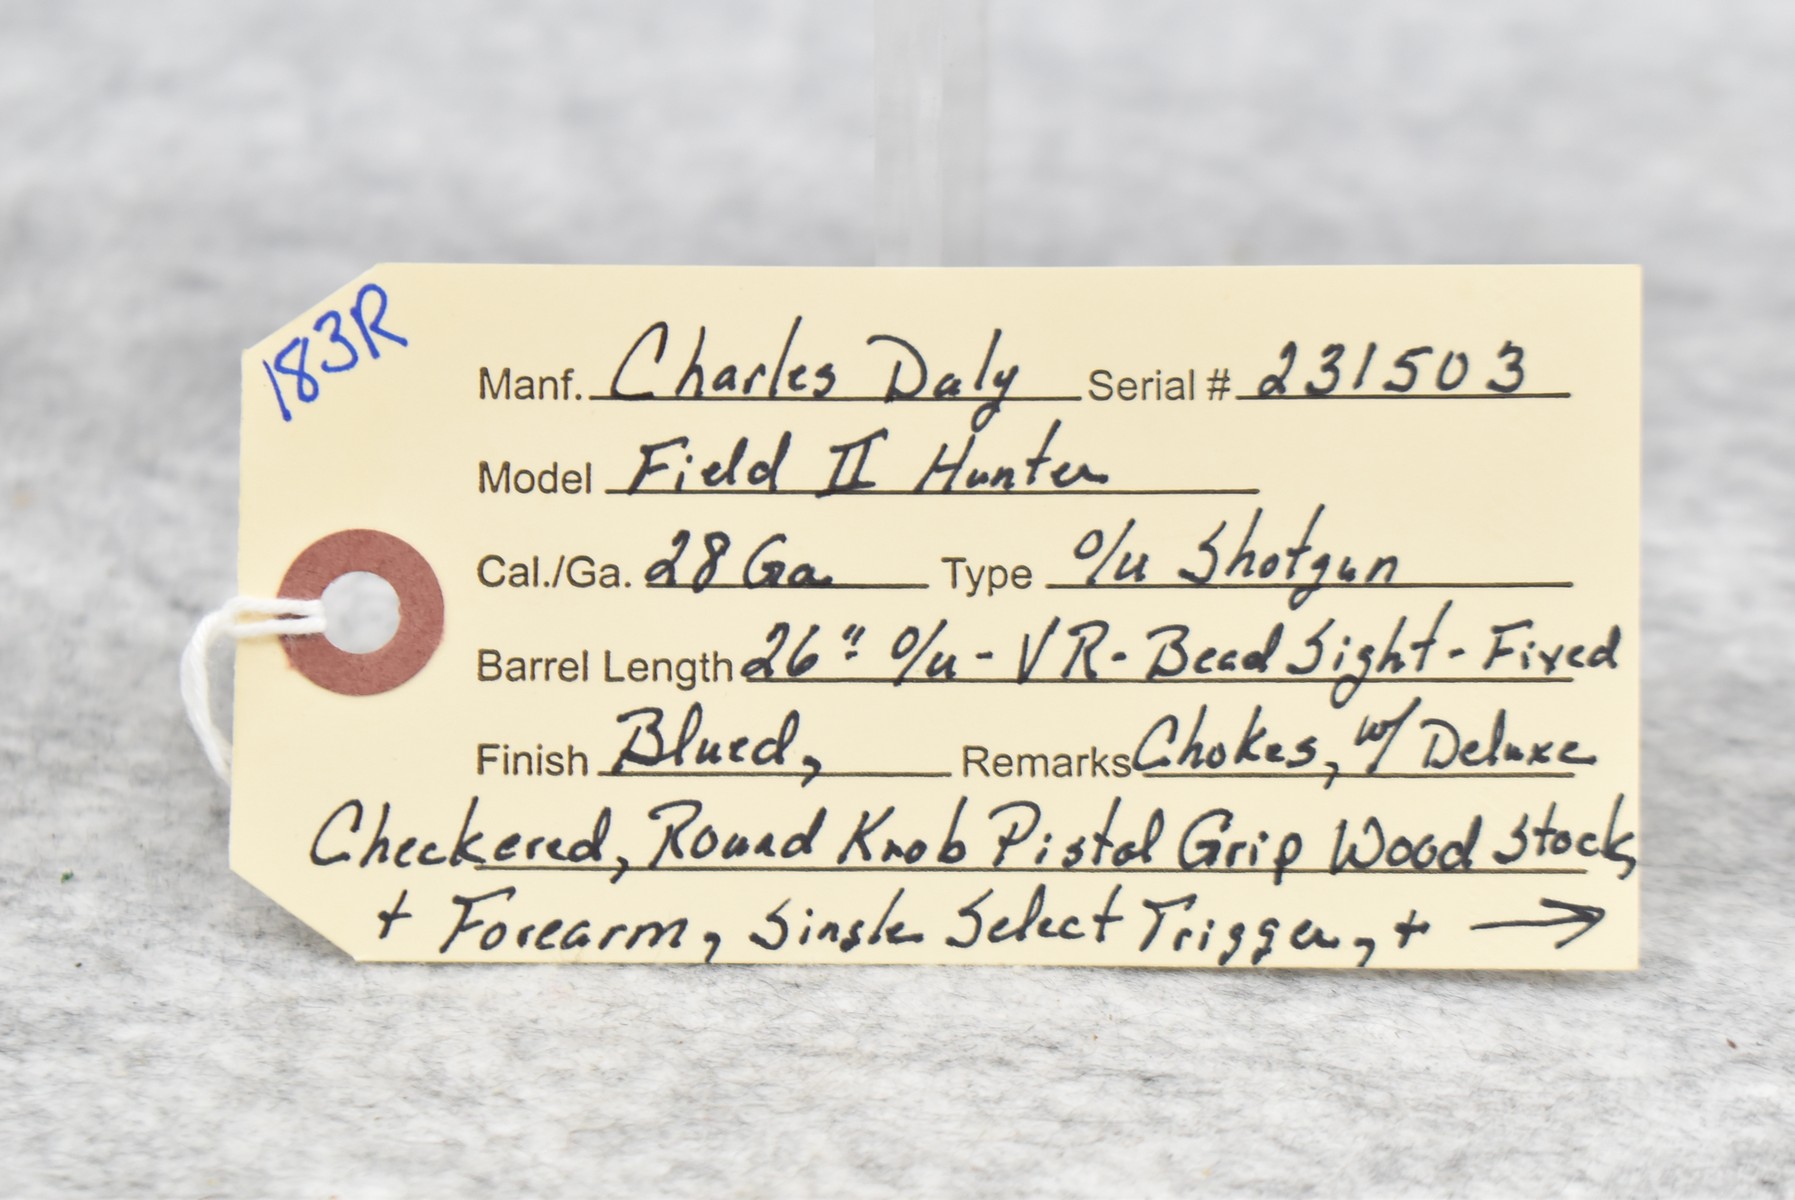 183R
Manf. Charles Daly Serial # 231503
Model Field II Hunter
Cal./Ga. 28 Ga. Type O/U Shotgun
Barrel Length 26" O/U - VR - Bead Sight - Fixed
Finish Blued, Remarks Chokes, w/ Deluxe
Checkered, Round Knob Pistol Grip Wood Stock,
+ Forearm, Single Select Trigger, + →